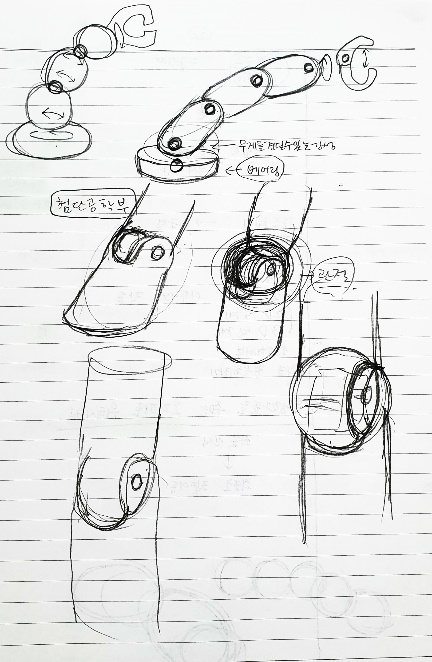 무게를 견딜수 있는 강성
베어링
첨단공학부
관절